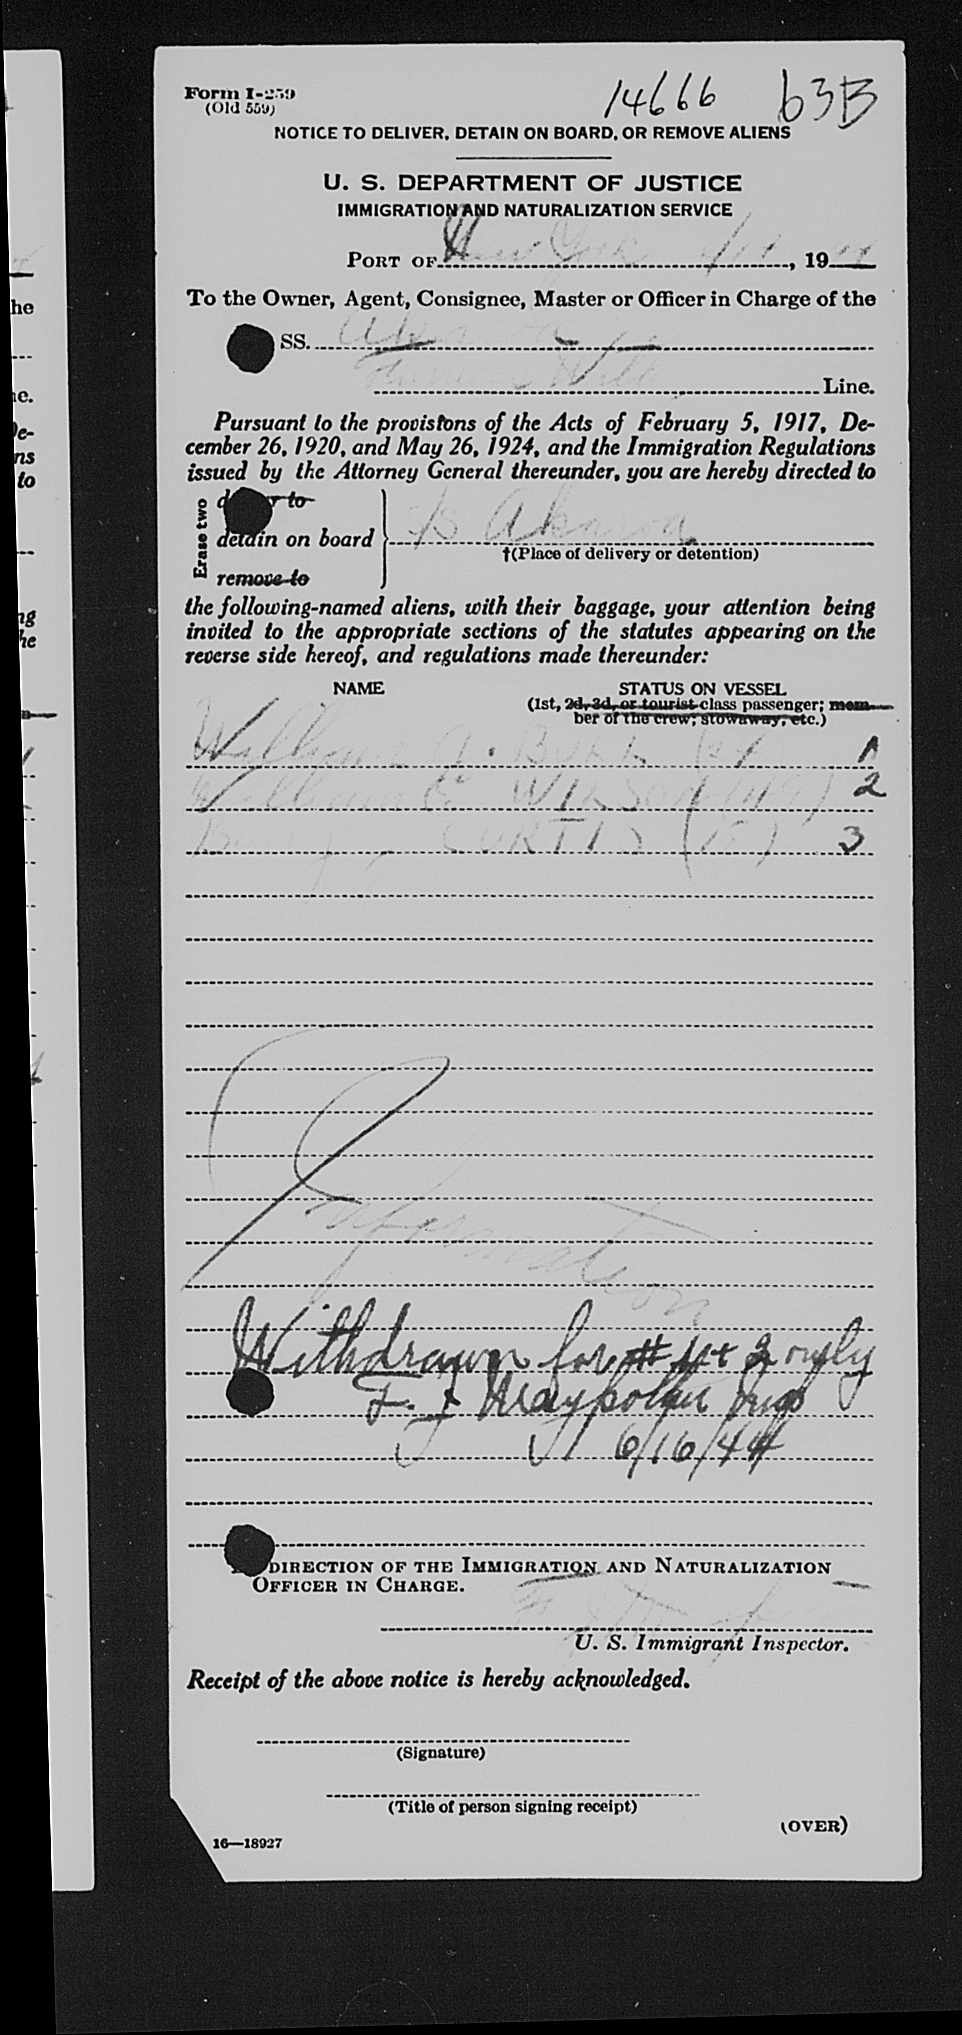 Form I-259
(Old 559)
14666 63B
NOTICE TO DELIVER, DETAIN ON BOARD, OR REMOVE ALIENS
U. S. DEPARTMENT OF JUSTICE
IMMIGRATION AND NATURALIZATION SERVICE
PORT OF New York, 19
To the Owner, Agent, Consignee, Master or Officer in Charge of the
SS.
Line.
Pursuant to the provisions of the Acts of February 5, 1917, De-
cember 26, 1920, and May 26, 1924, and the Immigration Regulations
issued by the Attorney General thereunder, you are hereby directed to
Erase two
to
detain on board
†(Place of delivery or detention)
remove to
the following-named aliens, with their baggage, your attention being
invited to the appropriate sections of the statutes appearing on the
reverse side hereof, and regulations made thereunder:
NAME STATUS ON VESSEL
(1st, 2d, 3d, or tourist class passenger; mem-
ber of the crew; stowaway, etc.)
William A. BURK 1
William WILSON 2
CURTIS 3
Information
Withdrawn for # 1 + 2 only
F. J.
6/16/44
DIRECTION OF THE IMMIGRATION AND NATURALIZATION
OFFICER IN CHARGE.
U. S. Immigrant Inspector.
Receipt of the above notice is hereby acknowledged.
(Signature)
(Title of person signing receipt)
(OVER)
16—18927